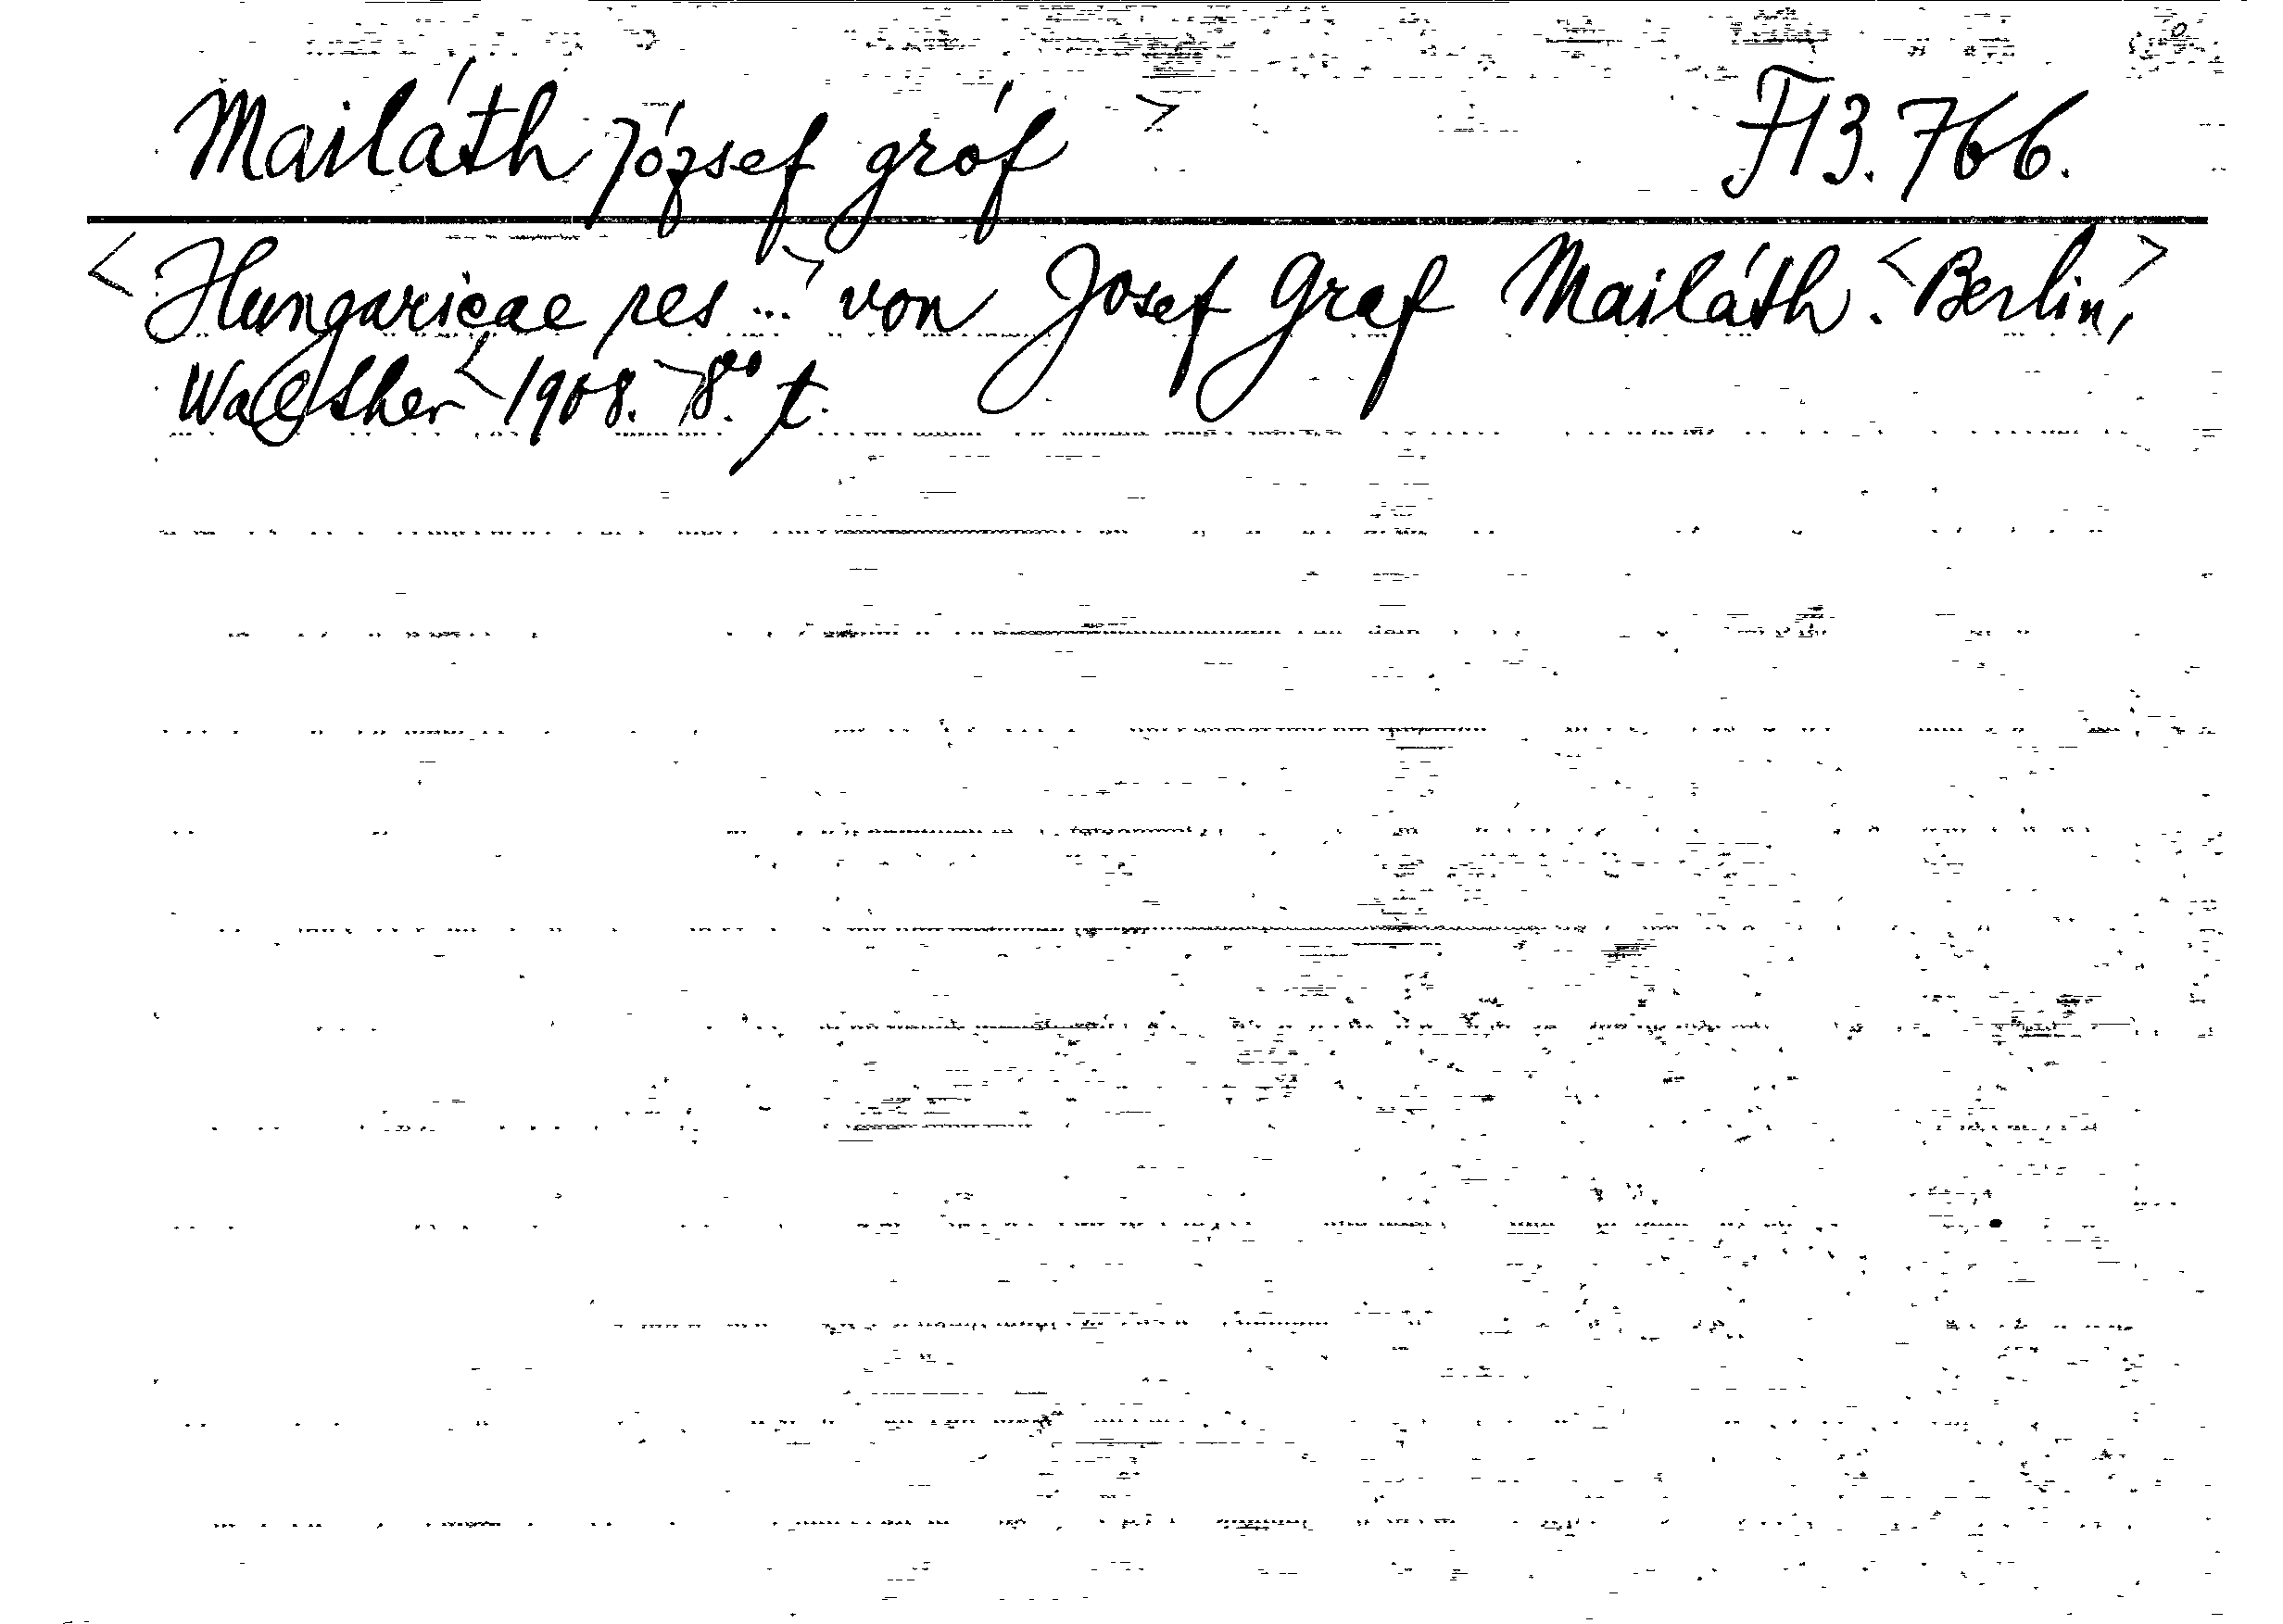 Mailáth József gróf > F13.766.
<Hungaricae res ...> von Josef Graf Mailáth. <Berlin,>
Walther <1908.> 8° t.